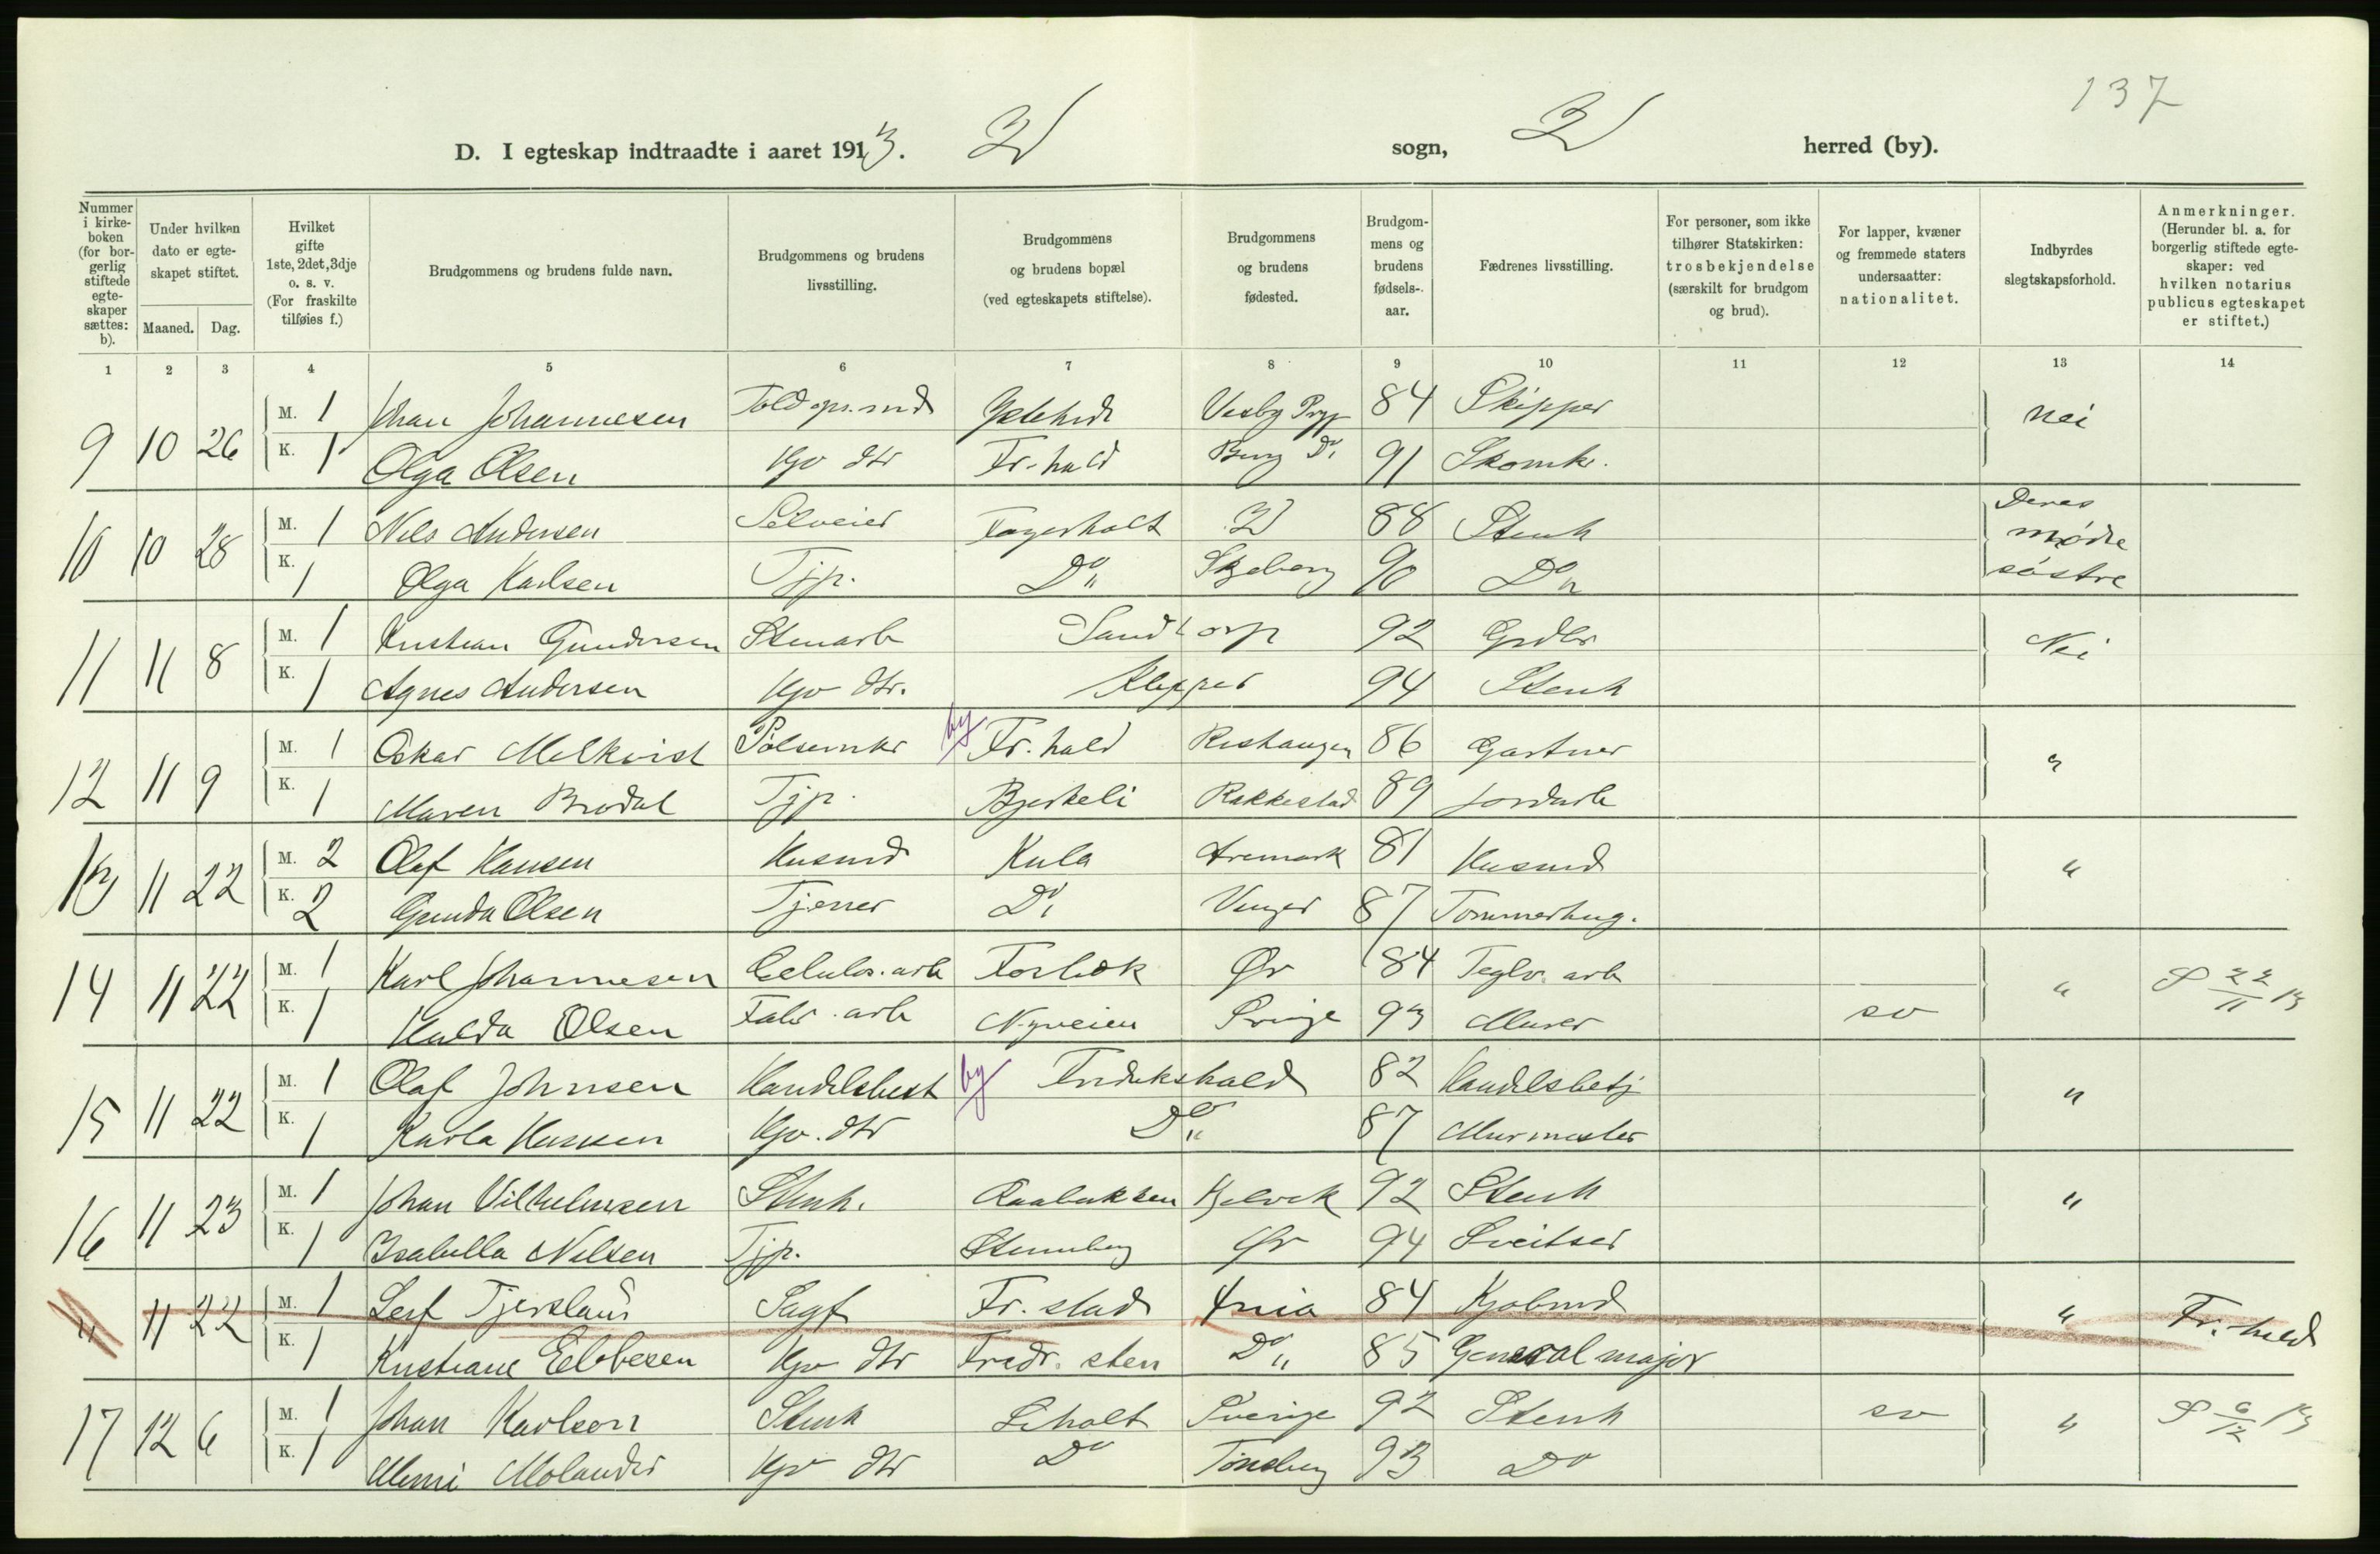 137
D. I egteskap indtraadte i aaret 1913. sogn, herred (by).
Nummer i kirke-boken (for bor-gerlig stiftede egte-skaper sættes: b).
Under hvilken dato er egte-skapet stiftet.
Maaned. Dag.
Hvilket gifte 1ste, 2det, 3dje o. s. v. (For fraskilte tilføies f.)
Brudgommens og brudens fulde navn.
Brudgommens og brudens livsstilling.
Brudgommens og brudens bopæl (ved egteskapets stiftelse).
Brudgommens og brudens fødested.
Brudgom-mens og brudens fødsels-aar.
Fædrenes livsstilling.
For personer, som ikke tilhører Statskirken: trosbekjendelse (særskilt for brudgom og brud).
For lapper, kvæner og fremmede staters undersaatter: nationalitet.
Indbyrdes slegtskapsforhold.
Anmerkninger. (Herunder bl. a. for borgerlig stiftede egte-skaper: ved hvilken notarius publicus egteskapet er stiftet.)
1 2 3 4 5 6 7 8 9 10 11 12 13 14
9 10 26 M. 1 Johan Johannesen 84 Skipper nei
K. 1 Olga Olsen Hjv dtr Fr.hald Berg Do 91 Skomk.
10 10 28 M. 1 Nils Andersen Selveier Fagerholt 88 Stenh Deres mødre søstre
K. 1 Olga Karlsen Tjp. Do Skjeberg 90 Do
11 11 8 M. 1 Kristian Gundersen Stenarb Sandtorp 92 Grdbr Nei
K. 1 Agnes Andersen Hjv dtr. Klepper 94 Stenh
12 11 9 M. 1 Oskar Melkvist Pølsemkr by Fr.hald Rishaugen 86 Gartner "
K. 1 Maren Brodal Tjp. Bjerkeli Rakkestad 89 Jordarb
13 11 22 M. 2 Olaf Hansen Husmd Kula Aremark 81 Husmd "
K. 2 Gunda Olsen Tjener Do Vinger 87 Tømmerhug.
14 11 22 M. 1 Karl Johannesen Celulos. arb Torbæk Ør 84 Teglv. arb " S 22/11 13
K. 1 Hulda Olsen Fabr. arb Nyveien Sverige 93 Murer sv
15 11 22 M. 1 Olaf Johnsen Handelsbest by Fredrikshald 82 Handelsbetj "
K. 1 Karla Hansen Hjv. dtr Do 87 Murmester
16 11 23 M. 1 Johan Vilhelmsen Stenh. Raabekken Kjelvik 92 Stenh "
K. 1 Isabella Nilsen Tjp. Stumberg Ør 94 Sveitser
" 11 22 M. 1 Leif Tjerslaus Sagf Fr. stad Kria 84 Kjøbmd " Fr. hald
K. 1 Kristiane Ebbesen Hjv dtr Fredr. sten Do 85 General major
17 12 6 M. 1 Johan Karlson Stenh Liholt Sverige 92 Stenh sv " S 6/12 13
K. 1 Memi Molander Hjv dtr Do Tønsberg 93 Do